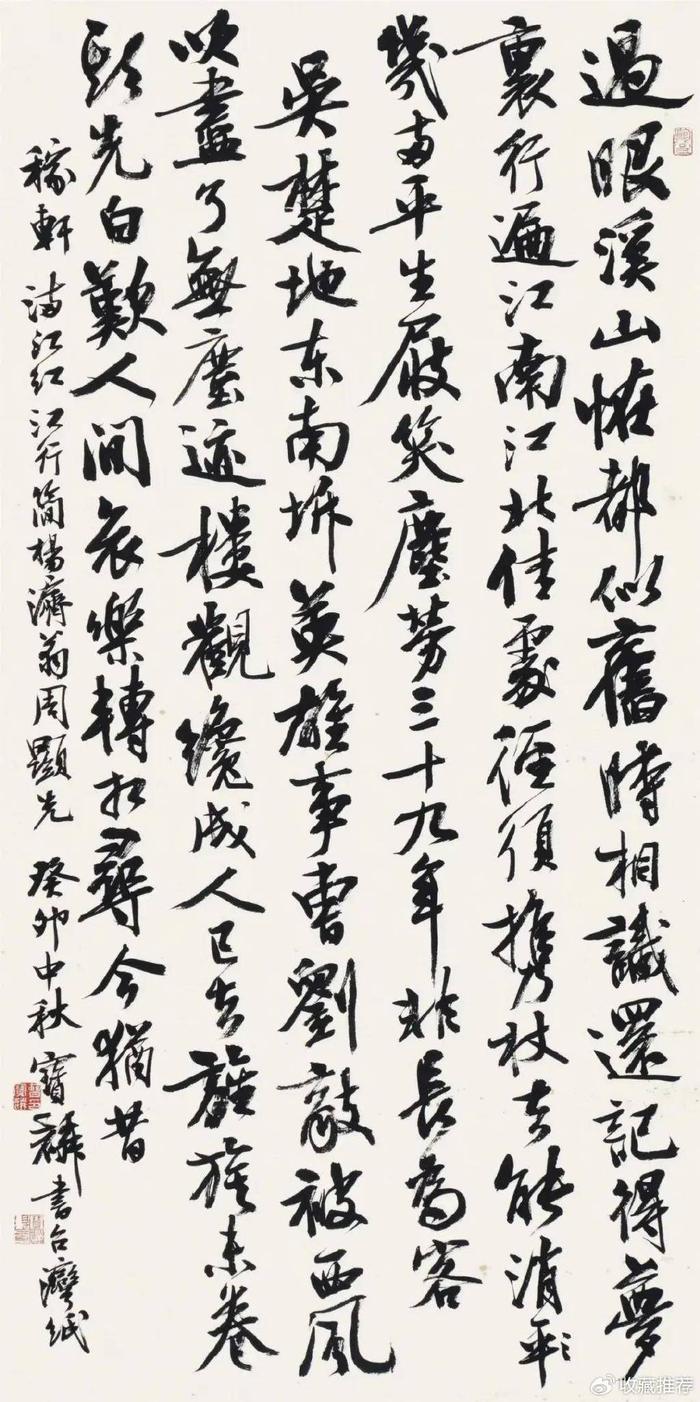 過眼溪山恠都似舊時相識還記得夢
裏行遍江南江北佳處徑須携杖去能消
幾兩平生屐笑塵勞三十九年非長為客
吳楚地东南坼英雄事曹劉敵被西風
吹盡了無塵迹樓觀纔成人已去旌旗未卷
頭先白歎人間哀樂轉相尋今猶昔
稼軒滿江紅江行简楊濟翁周顯先 癸卯中秋寶麟書台灣紙
收藏推荐